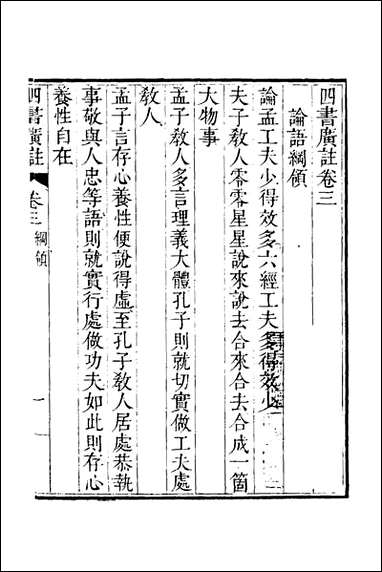 四書廣註卷三
論語綱領
論孟工夫少得效多六經工夫多得效少
夫子敎人零零星星說來說去合來合去合成一箇
大物事
孟子敎人多言理義大體孔子則就切實做工夫處
敎人
孟子言存心養性便說得虛至孔子敎人居處恭執
事敬與人忠等語則就實行處做功夫如此則存心
養性自在
四書廣註 卷三 綱領 一